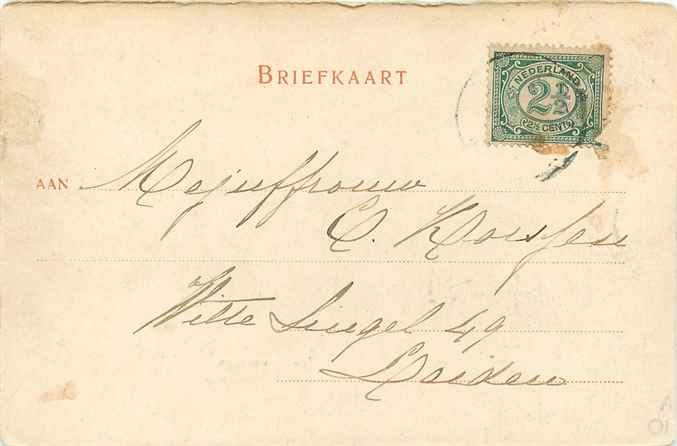 BRIEFKAART
NEDERLAND
2½
2½ CENT
AAN Mejuffrouw
C.
Witte Singel 49
Leiden